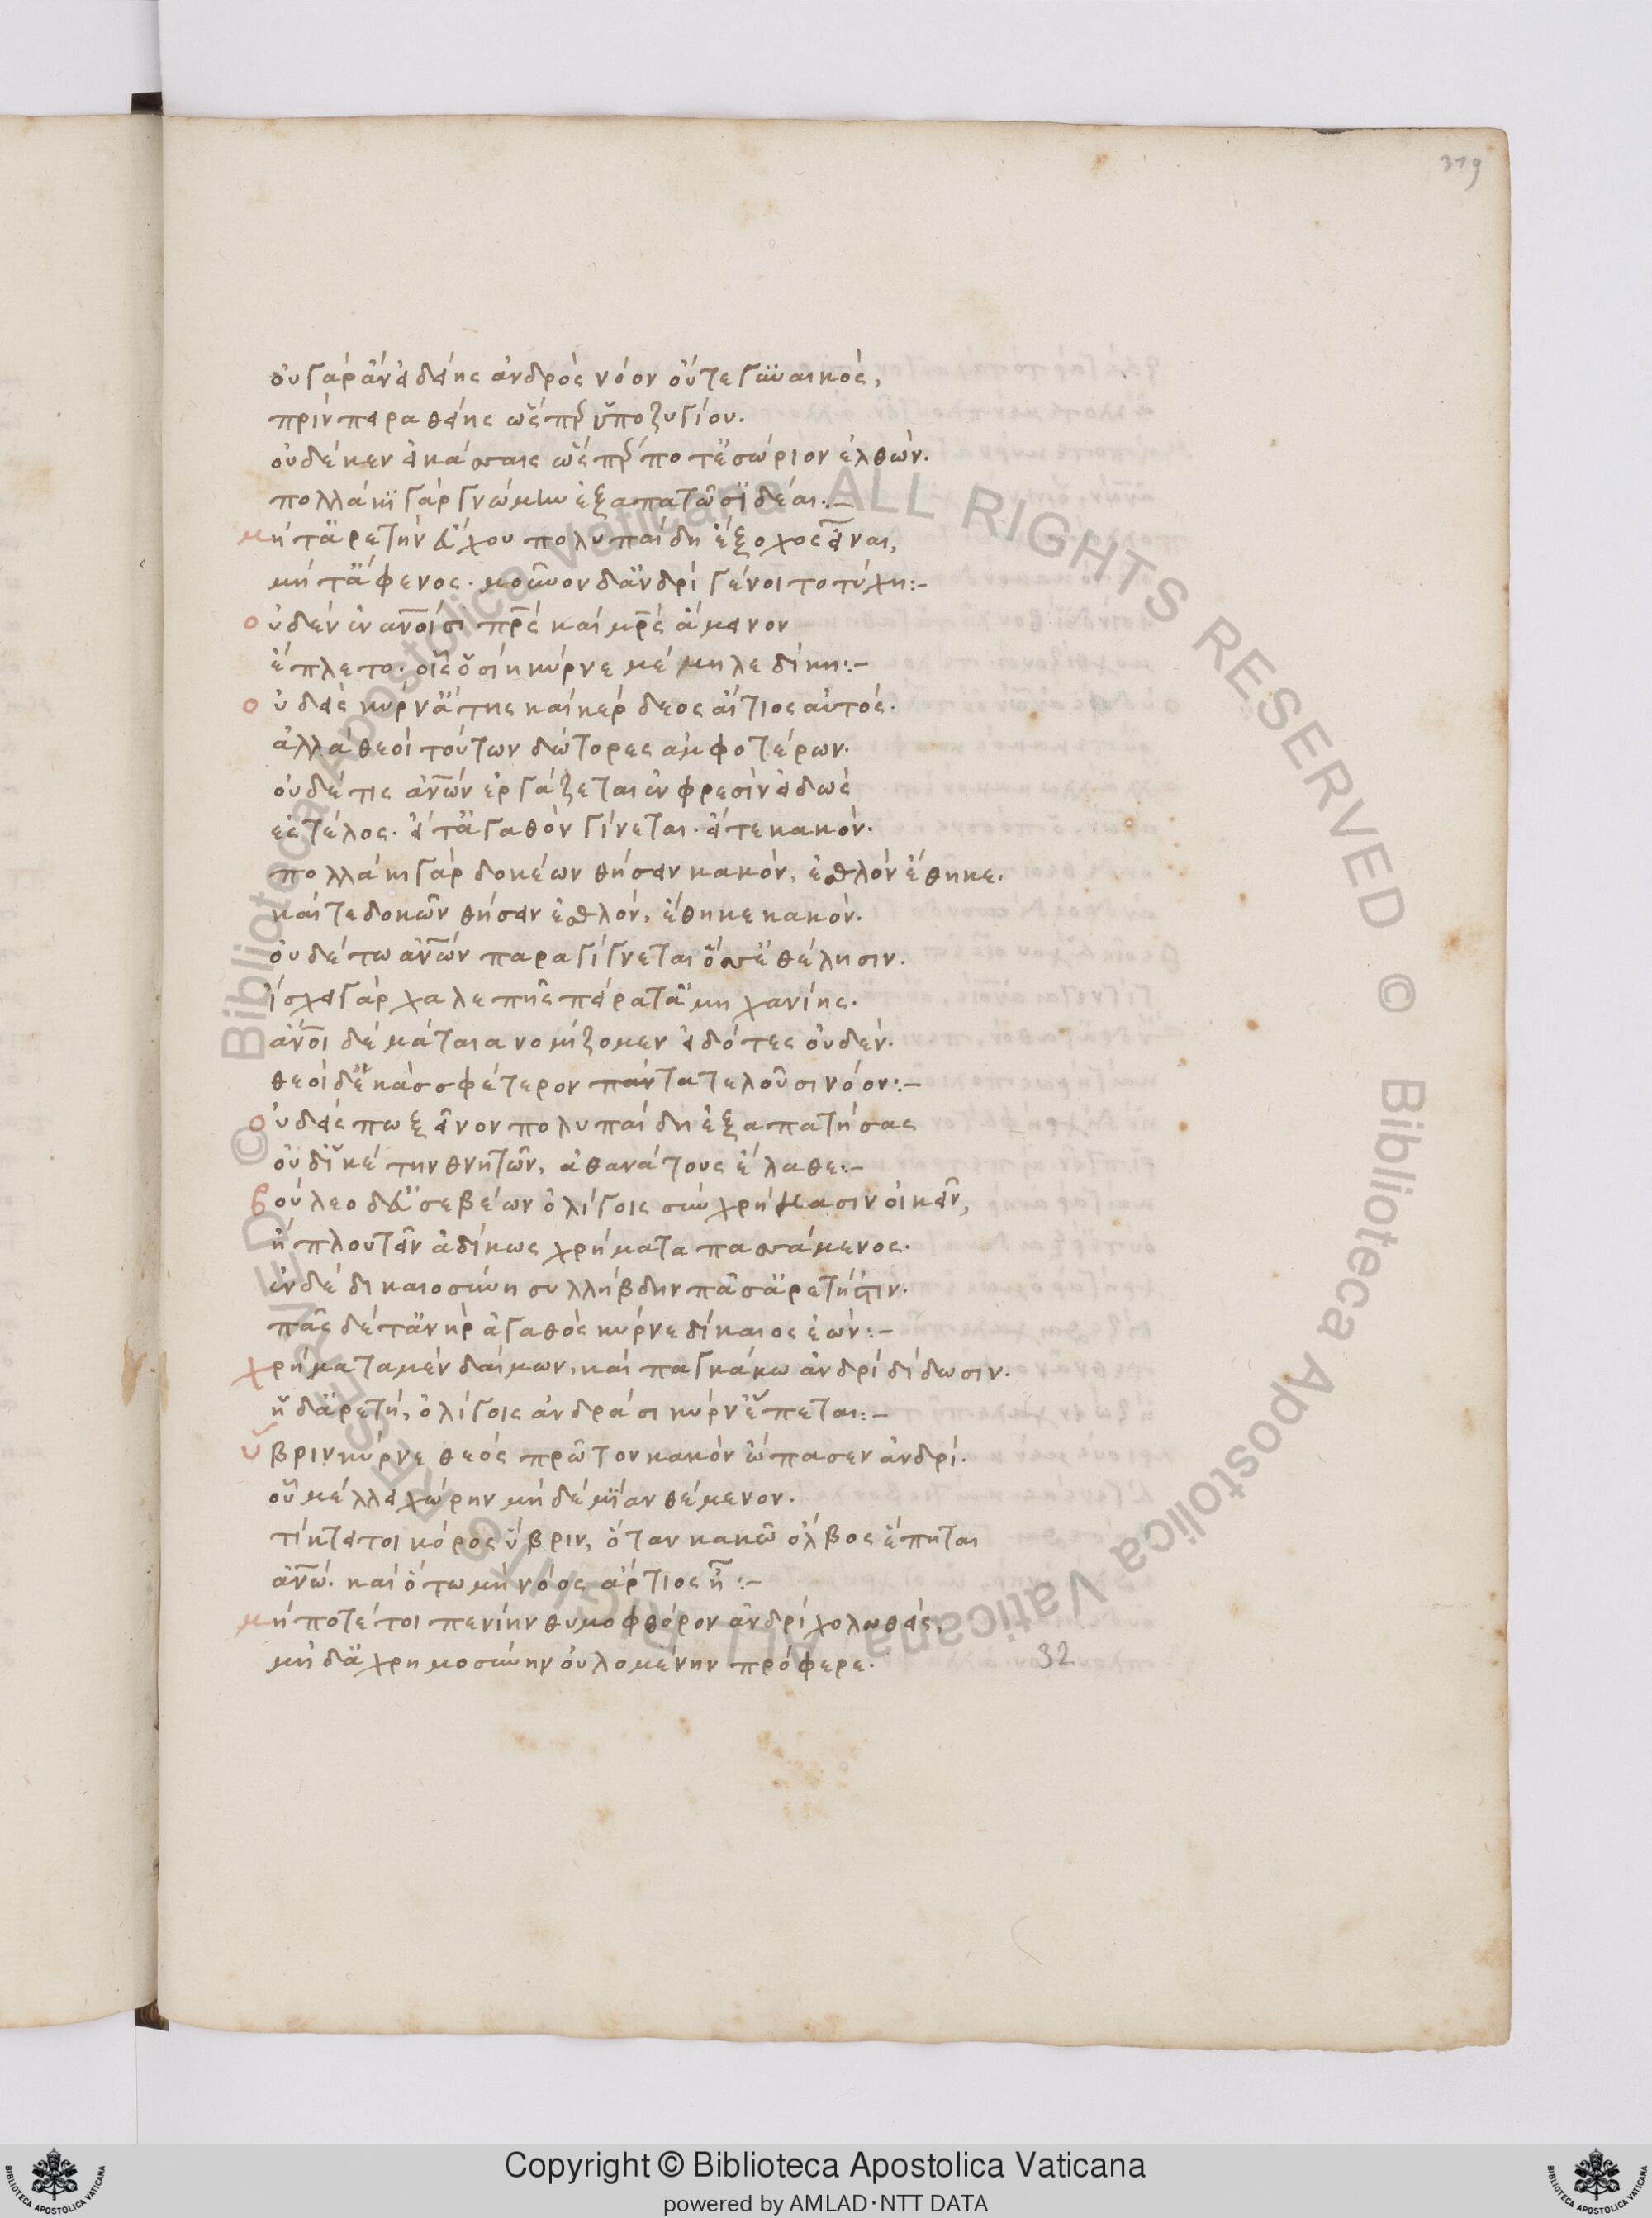 319
οὐ γὰρ ἂν εἰδείης ἀνδρὸς νόον οὔτε γυναικός,
πρὶν πειραθείης ὥσπερ ὑποζυγίου.
οὐδέ κεν εἰκάσσαις ὥσπερ ποτ' ἐς ὥριον ἐλθών.
πολλάκι γὰρ γνώμην ἐξαπατῶσ' ἰδέαι:–
μήτ' ἀρετὴν εὔχου πολυπαίδη ἔξοχος εἶναι,
μήτ' ἄφενος. μοῦνον δ' ἀνδρὶ γένοιτο τύχη:–
οὐδὲν ἐν ἀνοισι πρς καὶ μρς ἄμεινον
ἔπλετο. οἷς ὁσίη κύρνε μέμηλε δίκη:–
οὐδεὶς κύρν' ἄτης καὶ κέρδεος αἴτιος αὐτός.
ἀλλὰ θεοὶ τούτων δώτορες ἀμφοτέρων.
οὐδέ τις ἀνων ἐργάζεται ἐν φρεσὶν εἰδὼς
ἐς τέλος. εἴτ' ἀγαθὸν γίνεται. εἴτε κακόν.
πολλάκι γὰρ δοκέων θήσειν κακόν, ἐσθλὸν ἔθηκε.
καί τε δοκῶν θήσειν ἐσθλόν, ἔθηκε κακόν.
οὐδέ τω ἀνων παραγίγνεται ὅσσ' ἐθέλησιν.
ἴσχει γὰρ χαλεπῆς πείρατ' ἀμηχανίης.
ἄνοι δὲ μάταια νομίζομεν εἰδότες οὐδέν.
θεοὶ δὲ κὰς σφέτερον πάντα τελοῦσι νόον:–
οὐδείς πω ξεῖνον πολυπαίδη ἐξαπατήσας
οὐδ' ἱκέτην θνητῶν, ἀθανάτους ἔλαθε:–
βούλεο δ' εὐσεβέων ὀλίγοις σὺν χρήμασιν οἰκεῖν,
ἢ πλουτεῖν ἀδίκως χρήματα πασσάμενος.
ἐν δὲ δικαιοσύνη συλλήβδην πᾶσ' ἀρετή 'στιν.
πᾶς δέ τ' ἀνὴρ ἀγαθὸς κύρνε δίκαιος ἐών:–
χρήματα μὲν δαίμων, καὶ παγκάκω ἀνδρὶ δίδωσιν.
ἡ δ' ἀρετή, ὀλίγοις ἀνδράσι κύρν' ἕπεται:–
ὕβριν κύρνε θεὸς πρῶτον κακὸν ὤπασεν ἀνδρί.
οὗ μέλλει χώρην μηδὲ μίαν θέμενον.
τίκτει τοι κόρος ὕβριν, ὅταν κακῶ ὄλβος ἕπηται
ἀνω. καὶ ὅτω μὴ νόος ἄρτιος ἦ:–
μή ποτέ τοι πενίην θυμοφθόρον ἀνδρὶ χολωθείς,
μὴ δ' ἀχρημοσύνην οὐλομένην πρόφερε.
32
© Biblioteca Apostolica Vaticana ALL RIGHTS RESERVED © Biblioteca Apostolica Vaticana ALL RIGHTS RESERVED
Copyright © Biblioteca Apostolica Vaticana
powered by AMLAD·NTT DATA
BIBLIOTECA APOSTOLICA VATICANA
BIBLIOTECA APOSTOLICA VATICANA